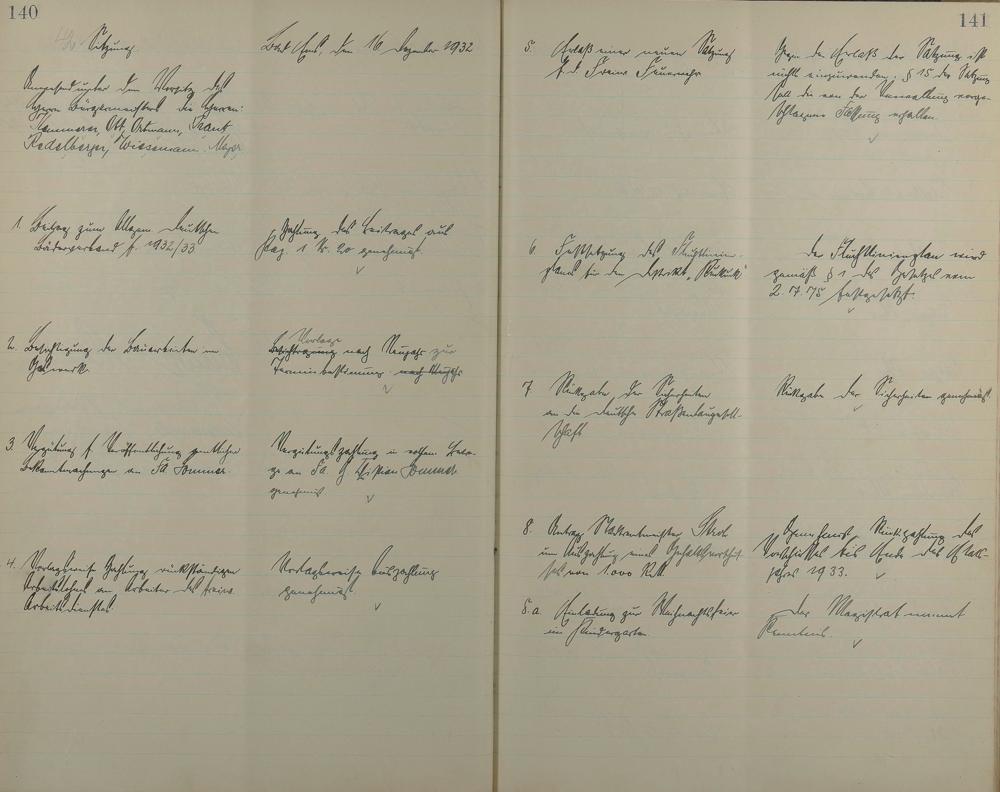 140
Sitzung
Bad Ems, den 16 Dezember 1932
Anwesend unter dem Vorsitz des
Herrn Bürgermeisters die Herren:
Kemmerer, Ott, Ortmann, Frank
Redelberger, Wiesemann. Mayer
1. Beitrag zum Allgem. Deutschen
Bäderverband f. 1932/33
Zahlung des Beitrages aus
Pag. 1 Nr. 20 genehmigt.
2. Besichtigung der Bauarbeiten im
Gaswerk.
Vorlage
Besichtigung nach Neujahr zur
Terminbestimmung nach Neujahr
3. Vergütung f. Veröffentlichung amtlicher
Bekanntmachungen an Fa Sommer.
Vergütungszahlung in
an Fa Christian Sommer
genehmigt
4. Vorlagsweise Zahlung rückständigen
Arbeitslohnes an Arbeiter des freiw.
Arbeitsdienstes
Vorlagsweise Auszahlung
genehmigt
141
5. Erlaß einer neuen Satzung
f. d. Freiw. Feuerwehr
Gegen den Erlaß der Satzung ist
nichts einzuwenden. § 15 der Satzung
soll die von der Verwaltung vorge-
schlagene Fassung erhalten.
6. Festsetzung des Fluchtlinien-
planes für den Distrikt "
Der Fluchtlinienplan wird
gemäß § 1 des Gesetzes vom
2. 7. 75 festgesetzt.
7 Rückgabe der Sicherheiten
an die deutsche Straßenbaugesell-
schaft
Rückgabe der Sicherheiten genehmigt
8. Antrag Stadtrentmeister
um Auszahlung eines Gehaltsvorschus-
ses von 1.000 RM.
Genehmigt. Rückzahlung des
Vorschusses bis Ende des Etats-
jahres 1933.
8.a Einladung zur Weihnachtsfeier
im Kindergarten
Der Magistrat nimmt
Kenntnis.